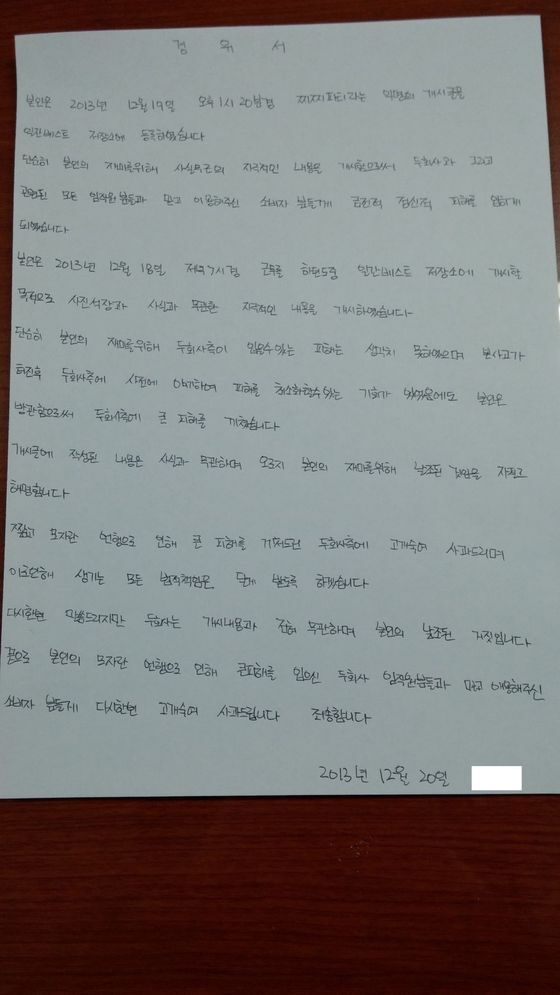 경 위 서
본인은 2013년 12월 19일 오후 1시 20분경 찌찌파티라는 익명의 게시글을
일간베스트 저장소에 등록하였습니다
단순히 본인의 재미를위해 사실무근의 자극적인 내용은 게시함으로써 두회사와 그리고
관련된 모든 임직원 분들과 믿고 이용해주신 소비자 분들게 금전적 정신적 피해를 입히게
되었습니다
본인은 2013년 12월 18일 저녁 7시경 근무를 하던도중 일간베스트 저장소에 게시할
목적으로 사진석장과 사실과 무관한 자극적인 내용을 게시하였습니다
단순히 본인의 재미를위해 두회사측이 입을수있는 피해는 생각치 못하였으며 본사고가
터진후 두회사측에 사전에 얘기하여 피해를 최소화할수있는 기회가 있었음에도 본인은
방관함으로써 두회사측에 큰 피해를 끼쳤습니다
게시글에 작성된 내용은 사실과 무관하며 오로지 본인의 재미를위해 날조된 것임을 자필로
해명합니다
짧고 모자란 언행으로 인해 큰 피해를 가져드린 두회사측에 고개숙여 사과드리며
이로인해 생기는 모든 법적책임은 달게 받도록 하겠습니다
다시한번 말씀드리지만 두회사는 게시내용과 전혀 무관하며 본인의 날조된 거짓입니다
끝으로 본인의 모자란 언행으로 인해 큰피해를 입으신 두회사 임직원분들과 믿고 이용해주신
소비자 분들게 다시한번 고개숙여 사과드립니다 죄송합니다
2013년 12월 20일